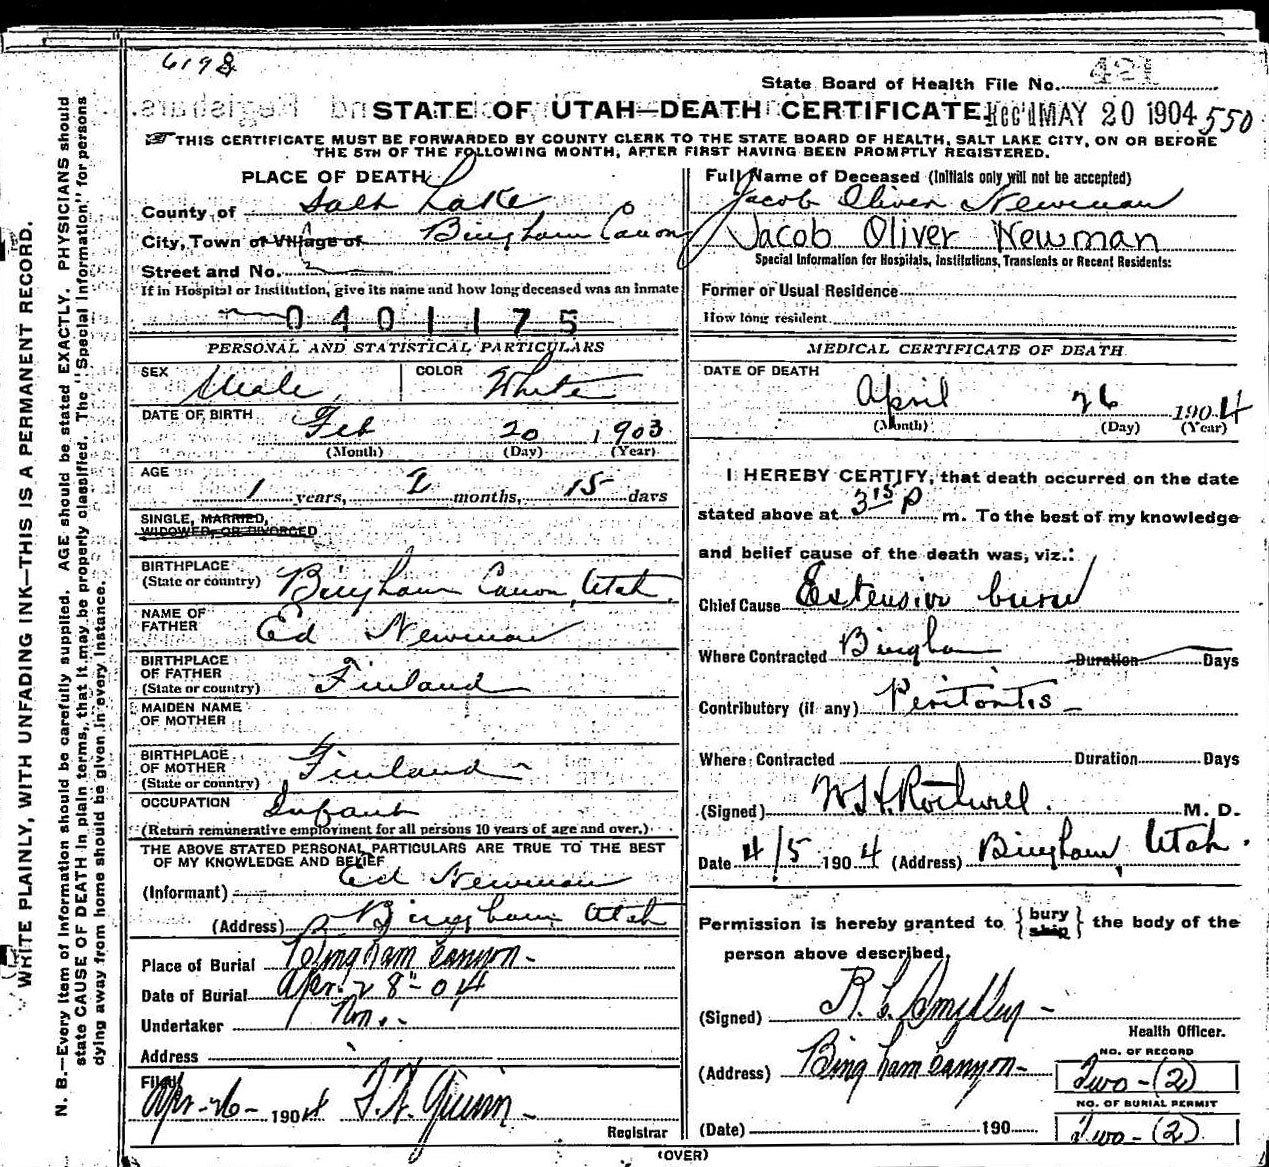 6198
State Board of Health File No. 421
STATE OF UTAH—DEATH CERTIFICATE. Rec'd MAY 20 1904 550
THIS CERTIFICATE MUST BE FORWARDED BY COUNTY CLERK TO THE STATE BOARD OF HEALTH, SALT LAKE CITY, ON OR BEFORE
THE 5TH OF THE FOLLOWING MONTH, AFTER FIRST HAVING BEEN PROMPTLY REGISTERED.
WRITE PLAINLY, WITH UNFADING INK—THIS IS A PERMANENT RECORD.
N. B.—Every item of Information should be carefully supplied. AGE should be stated EXACTLY. PHYSICIANS should
state CAUSE OF DEATH in plain terms, that it may be properly classified. The "Special Information" for persons
dying away from home should be given in every instance.
PLACE OF DEATH
County of Salt Lake
City, Town or Village of Bingham Canon
Street and No.
If in Hospital or Institution, give its name and how long deceased was an inmate
0401175
PERSONAL AND STATISTICAL PARTICULARS
SEX Male COLOR White
DATE OF BIRTH Feb 20 1903
(Month) (Day) (Year)
AGE 1 years, 2 months, 15 days
SINGLE, MARRIED,
WIDOWED, OR DIVORCED
BIRTHPLACE
(State or country) Bingham Canon, Utah
NAME OF
FATHER Ed Newman
BIRTHPLACE
OF FATHER
(State or country) Finland
MAIDEN NAME
OF MOTHER
BIRTHPLACE
OF MOTHER
(State or country) Finland
OCCUPATION Infant
(Return remunerative employment for all persons 10 years of age and over.)
THE ABOVE STATED PERSONAL PARTICULARS ARE TRUE TO THE BEST
OF MY KNOWLEDGE AND BELIEF
(Informant) Ed Newman
(Address) Bingham Utah
Place of Burial Bingham Canyon-
Date of Burial Apr. 28"-04
Undertaker
Address
Filed
Apr-26- 1904 F. W. Quinn-
Registrar
Full Name of Deceased (Initials only will not be accepted)
Jacob Oliver Newman
Jacob Oliver Newman
Special Information for Hospitals, Institutions, Transients or Recent Residents:
Former or Usual Residence
How long resident
MEDICAL CERTIFICATE OF DEATH
DATE OF DEATH
April 26 1904
(Month) (Day) (Year)
I HEREBY CERTIFY, that death occurred on the date
stated above at 3 15 P m. To the best of my knowledge
and belief cause of the death was, viz.:
Chief Cause Extensive burn
Where Contracted Bingham Duration Days
Contributory (if any) Peritontis-
Where Contracted Duration Days
(Signed) Rotwell. M. D.
Date 4/5 1904 (Address) Bingham, Utah.
Permission is hereby granted to { bury ship } the body of the
person above described.
(Signed) R. L.
Health Officer.
(Address) Bingham Canyon-
NO. OF RECORD
Two-(2)
NO. OF BURIAL PERMIT
(Date) 190 Two-(2)
(OVER)